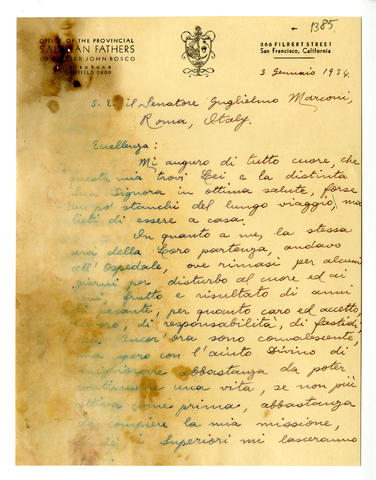 1385
OFFICE OF THE PROVINCIAL
SALESIAN FATHERS
OF BLESSED JOHN BOSCO
Telephone
GARFIELD 0809
666 FILBERT STREET
San Francisco, California
3 Gennaio 1934.
S. E. il Senatore Guglielmo Marconi,
Roma, Italy.
Eccellenza:
Mi auguro di tutto cuore, che
questa mia trovi Lei e la distinta
Sua Signora in ottima salute, forse
un po' stanchi del lungo viaggio, ma
lieti di essere a casa.
In quanto a me, la stessa
sera della Loro partenza, andavo
all'Ospedale, ove rimasi per alcuni
giorni per disturbo al cuore ed ai
frutto e risultato di anni
di pesante, per quanto caro ed accetto,
lavoro, di responsabilità, di fastidi.
Ancor'ora sono convalescente,
ma spero con l'aiuto Divino di
migliorare abbastanza da poter
continuare una vita, se non più
attiva come prima, abbastanza
da compiere la mia missione,
i Superiori mi lasceranno